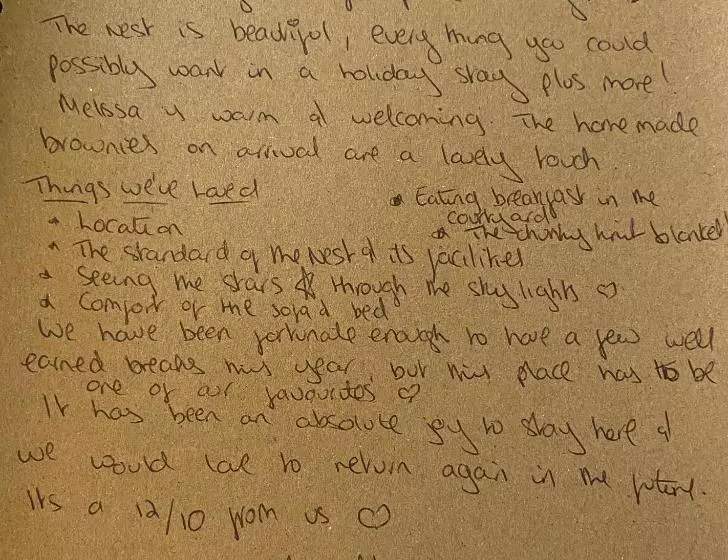 The Nest is beautiful, everything you could
possibly want in a holiday stay plus more!
Melissa is warm & welcoming. The homemade
brownies on arrival are a lovely touch.
Things we've Loved
* Location
* The standard of the Nest & its facilities
* Seeing the stars ☆ through the sky lights ♡
* Comfort of the sofa & bed
* Eating breakfast in the
courtyard
* The chunky knit blanket
We have been fortunate enough to have a few well
earned breaks this year, but this place has to be
one of our favourites ♡
It has been an absolute joy to stay here &
we would love to return again in the future.
Its a 12/10 from us ♡